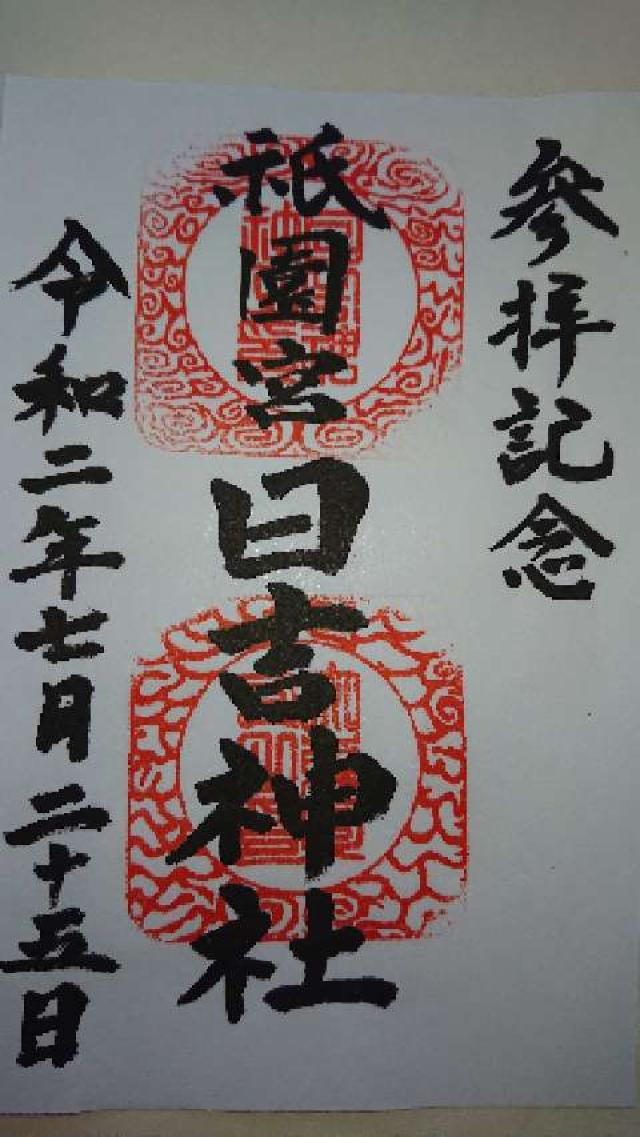 参拝記念
祇園宮
日吉神社
令和二年七月二十五日